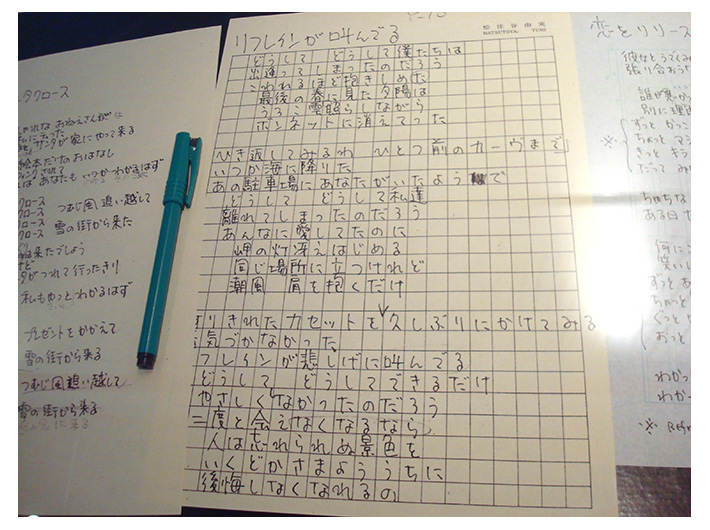 タクロース
おねえさんが
サンタが家にやって来る
絵本だけのおはなし
あなたも いつかわかるはず
クロース つむじ風 追い越して
クロース 雪の街から来た
来たでしょう
つれて行ったきり
私もやっとわかるはず
プレゼントをかかえて
雪の街から来る
つむじ風 追い越して
雪の街から来る
リフレインが叫んでる
松任谷由実
MATSUTOYA YUMI
どうして どうして僕たちは
出逢ってしまったのだろう
こわれるほど抱きしめた
最後の春に見た夕陽は
うろこ雲照らしながら
ボンネットに消えてった
ひき返してみるわ ひとつ前のカーヴまで
いつか海に降りた
あの駐車場にあなたがいたようで
どうして どうして私達
離れてしまったのだろう
あんなに愛してたのに
岬の灯冴えはじめる
同じ場所に立つけれど
潮風 肩を抱くだけ
すりきれたカセットを久しぶりにかけてみる
気づかなかった
フレインが悲しげに叫んでる
どうして どうしてできるだけ
やさしくなかったのだろう
二度と会えなくなるなら
人は忘れられぬ景色を
いくどかさまよううちに
後悔しなくなれるの
恋をリリース
彼女とうでくみ
張り合おう
誰が悪か
別に理由
※
ずっと かっこ
ちょっと マジ
きっと そう
だって み
ちゅうな
ある日
何に
笑い
ずっとあ
ちょっと
ぐっと
おっと
わかっ
わかー
※ Refr